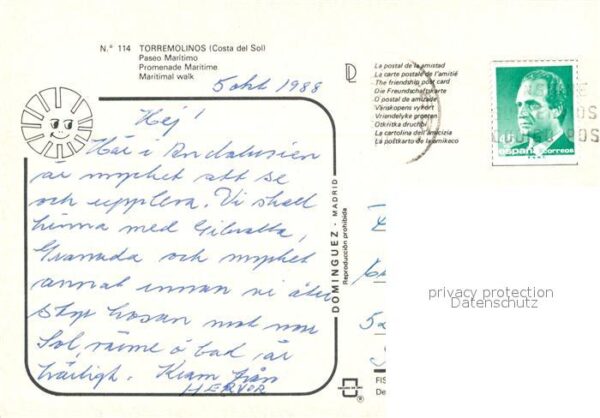 N.° 114 TORREMOLINOS (Costa del Sol)
Paseo Marítimo
Promenade Maritime
Maritimal walk
5 okt 1988
Hej!
Här i Andalusien
är mycket att se
och uppleva. Vi skall
hinna med Gibralta,
Granada och mycket
annat innan vi åter
styr kosan mot norr
Sol, värme o bad är
härligt. Kram från
HERVOR
La postal de la amistad
La carte postale de l'amitié
The friendship post card
Die Freundschaftskarte
O postal de amizade
Vänskapens vykort
Vriendelyke groeten
Odkritka druchbi
La cartolina dell'amicizia
La postkarto de la amikaco
DOMINGUEZ - MADRID
Reproducción prohibida
españa correos
FIS
De
privacy protection
Datenschutz